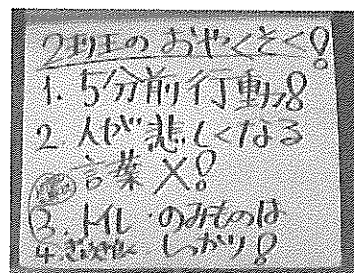 2班のおやくそく!
1. 5分前行動!
2 人が悲しくなる
言葉×!
3. トイレ・のみものは
4. しっかり!